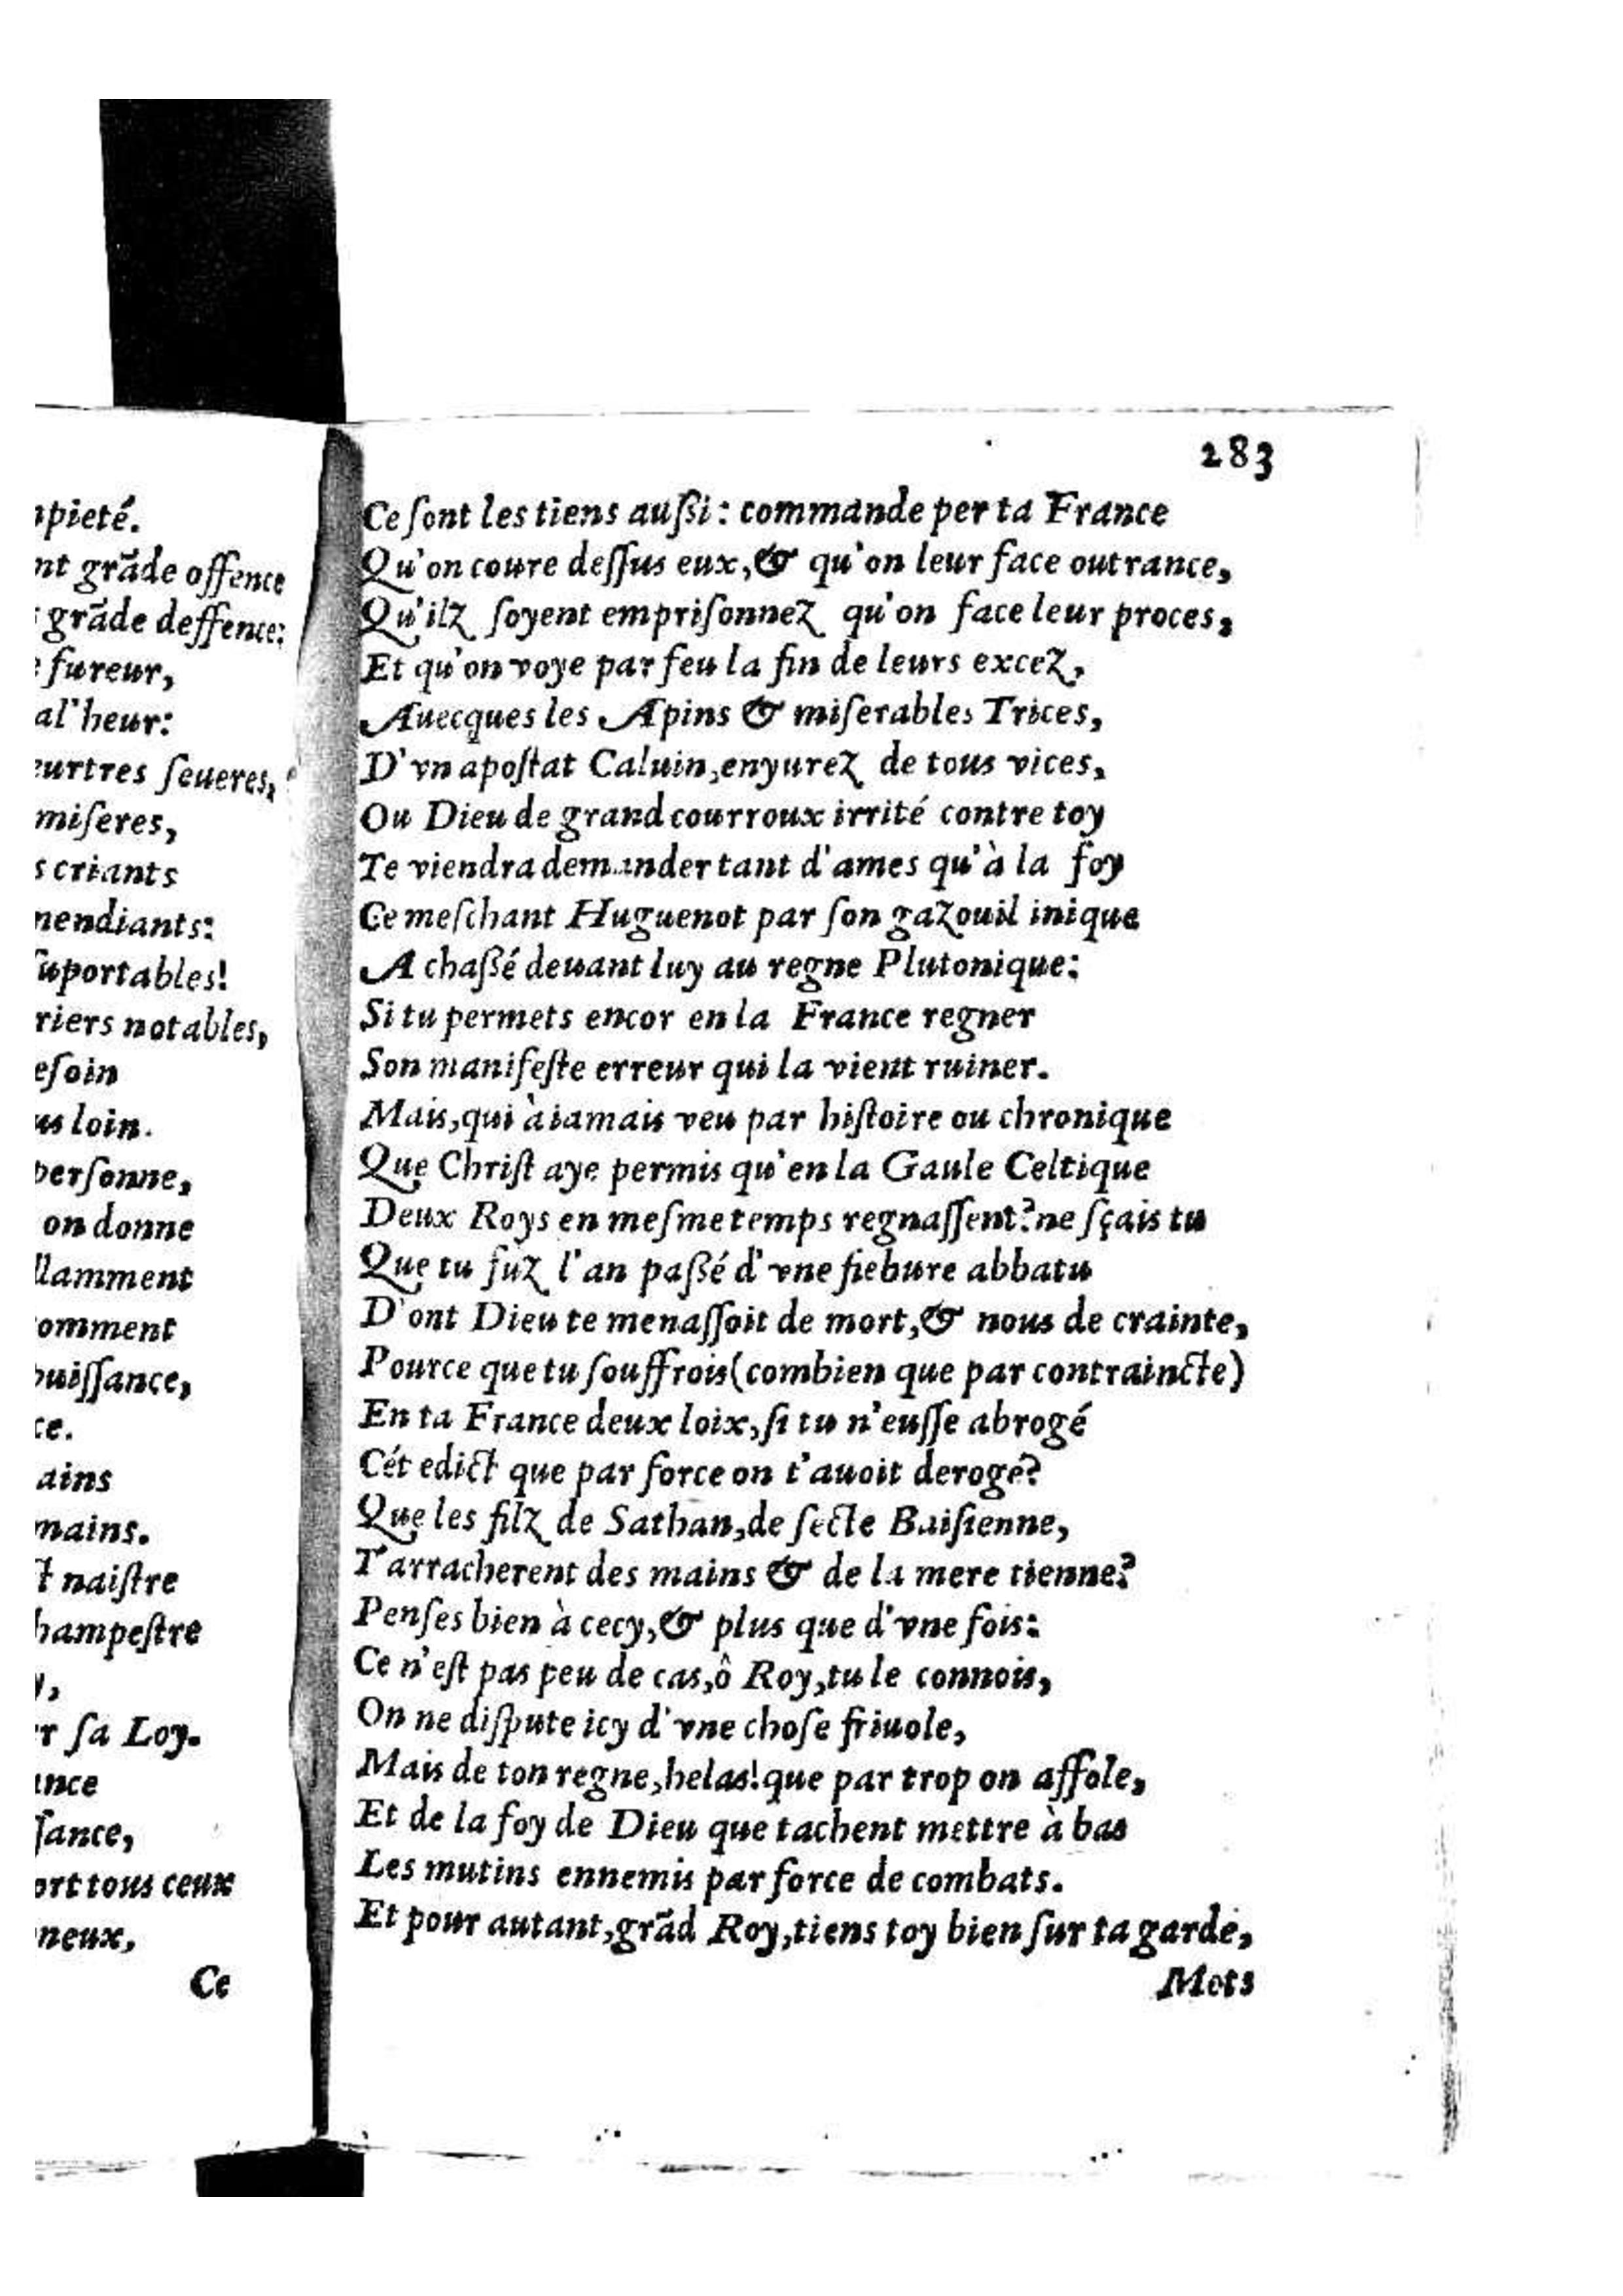 pieté.
nt grãde offence
grãde deffence:
fureur,
al'heur:
eurtres ſeueres,
miſeres,
s criants
mendiants:
ſuportables!
riers notables,
eſoin
us loin.
perſonne,
on donne
llamment
comment
puiſſance,
ce.
ains
mains.
ſt naiſtre
hampeſtre
y,
r ſa Loy.
ance
ſſance,
ort tous ceux
neux,
Ce
283
Ce ſont les tiens auſſi: commande per ta France
Qu'on coure deſſus eux, & qu'on leur face outrance,
Qu'ilz ſoyent empriſonnez qu'on face leur proces,
Et qu'on voye par feu la fin de leurs excez,
Auecques les Apins & miſerables Trices,
D'vn apoſtat Caluin, enyurez de tous vices,
Ou Dieu de grand courroux irrité contre toy
Te viendra demander tant d'ames qu'à la foy
Ce meſchant Huguenot par ſon gazouil inique
A chaßé deuant luy au regne Plutonique:
Si tu permets encor en la France regner
Son manifeſte erreur qui la vient ruiner.
Mais, qui à iamais veu par hiſtoire ou chronique
Que Chriſt aye permis qu'en la Gaule Celtique
Deux Roys en meſme temps regnaſſent? ne ſçais tu
Que tu fuz l'an paßé d'vne fiebure abbatu
D'ont Dieu te menaſſoit de mort, & nous de crainte,
Pource que tu ſouffrois (combien que par contraincte)
En ta France deux loix, ſi tu n'euſſe abrogé
Cét edict que par force on t'auoit derogé?
Que les filz de Sathan, de ſecte Baiſienne,
T'arracherent des mains & de la mere tienne?
Penſes bien à cecy, & plus que d'vne fois:
Ce n'eſt pas peu de cas, ô Roy, tu le connois,
On ne diſpute icy d'vne choſe friuole,
Mais de ton regne, helas! que par trop on affole,
Et de la foy de Dieu que tachent mettre à bas
Les mutins ennemis par force de combats.
Et pour autant, grãd Roy, tiens toy bien ſur ta garde,
Mets